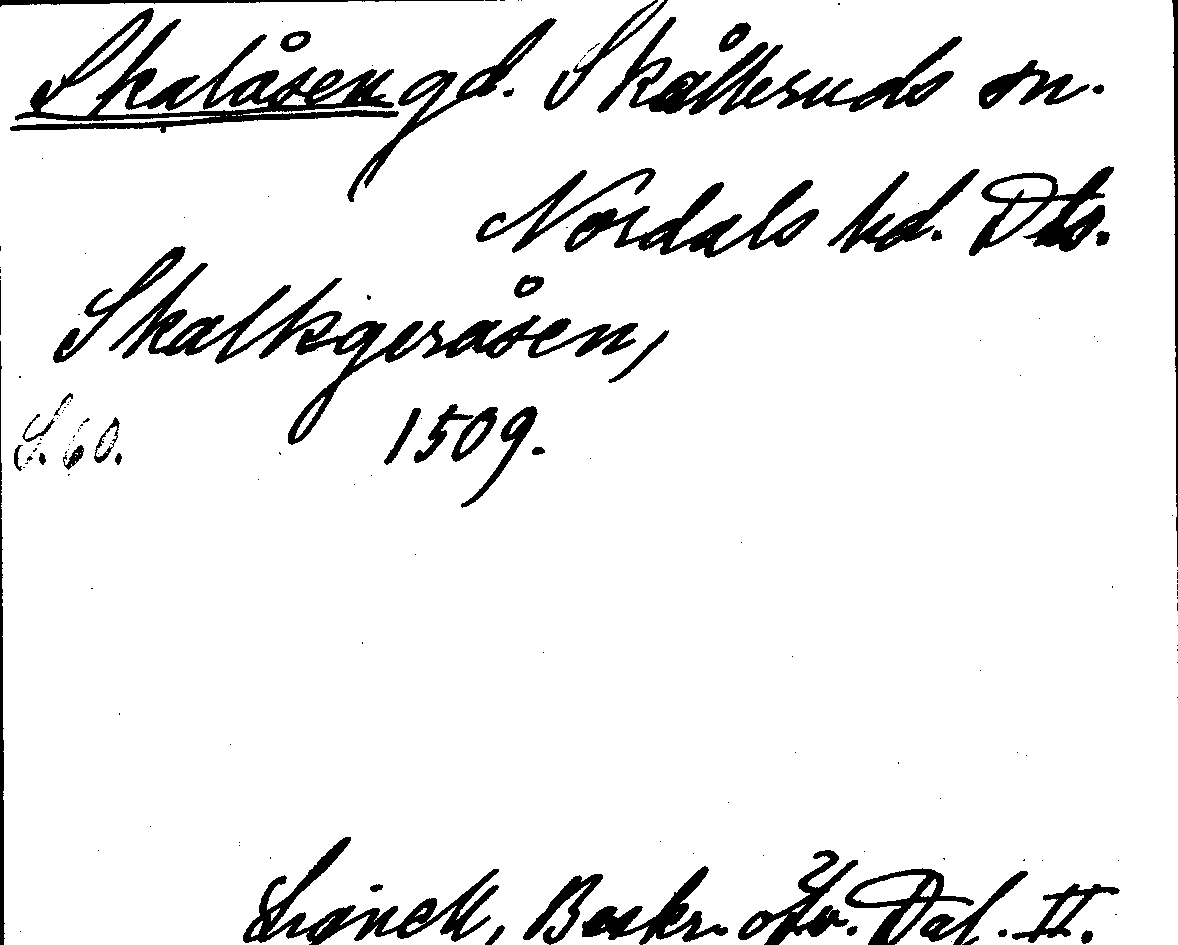 Skalåsen gd. Skålleruds sn.
Nordals hd. Dls.
Skalkgeråsen,
S. 60. 1509.
Lignell, Beskr. öfv. Dal. II.